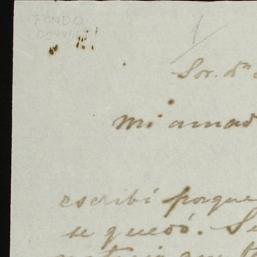 FONDO
1
Sor. Dn
mi amad
escribí porque
se quedó. Se